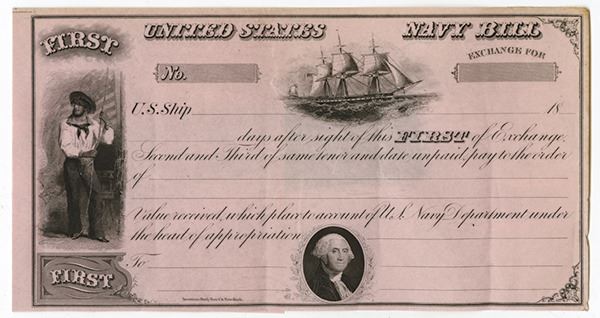 FIRST
UNITED STATES NAVY BILL
No.
EXCHANGE FOR
U.S. Ship 18
days after sight of this FIRST of Exchange,
Second and Third of same tenor and date unpaid, pay to the order
of
Value received, which place to account of U.S. Navy Department under
the head of appropriation
To
FIRST